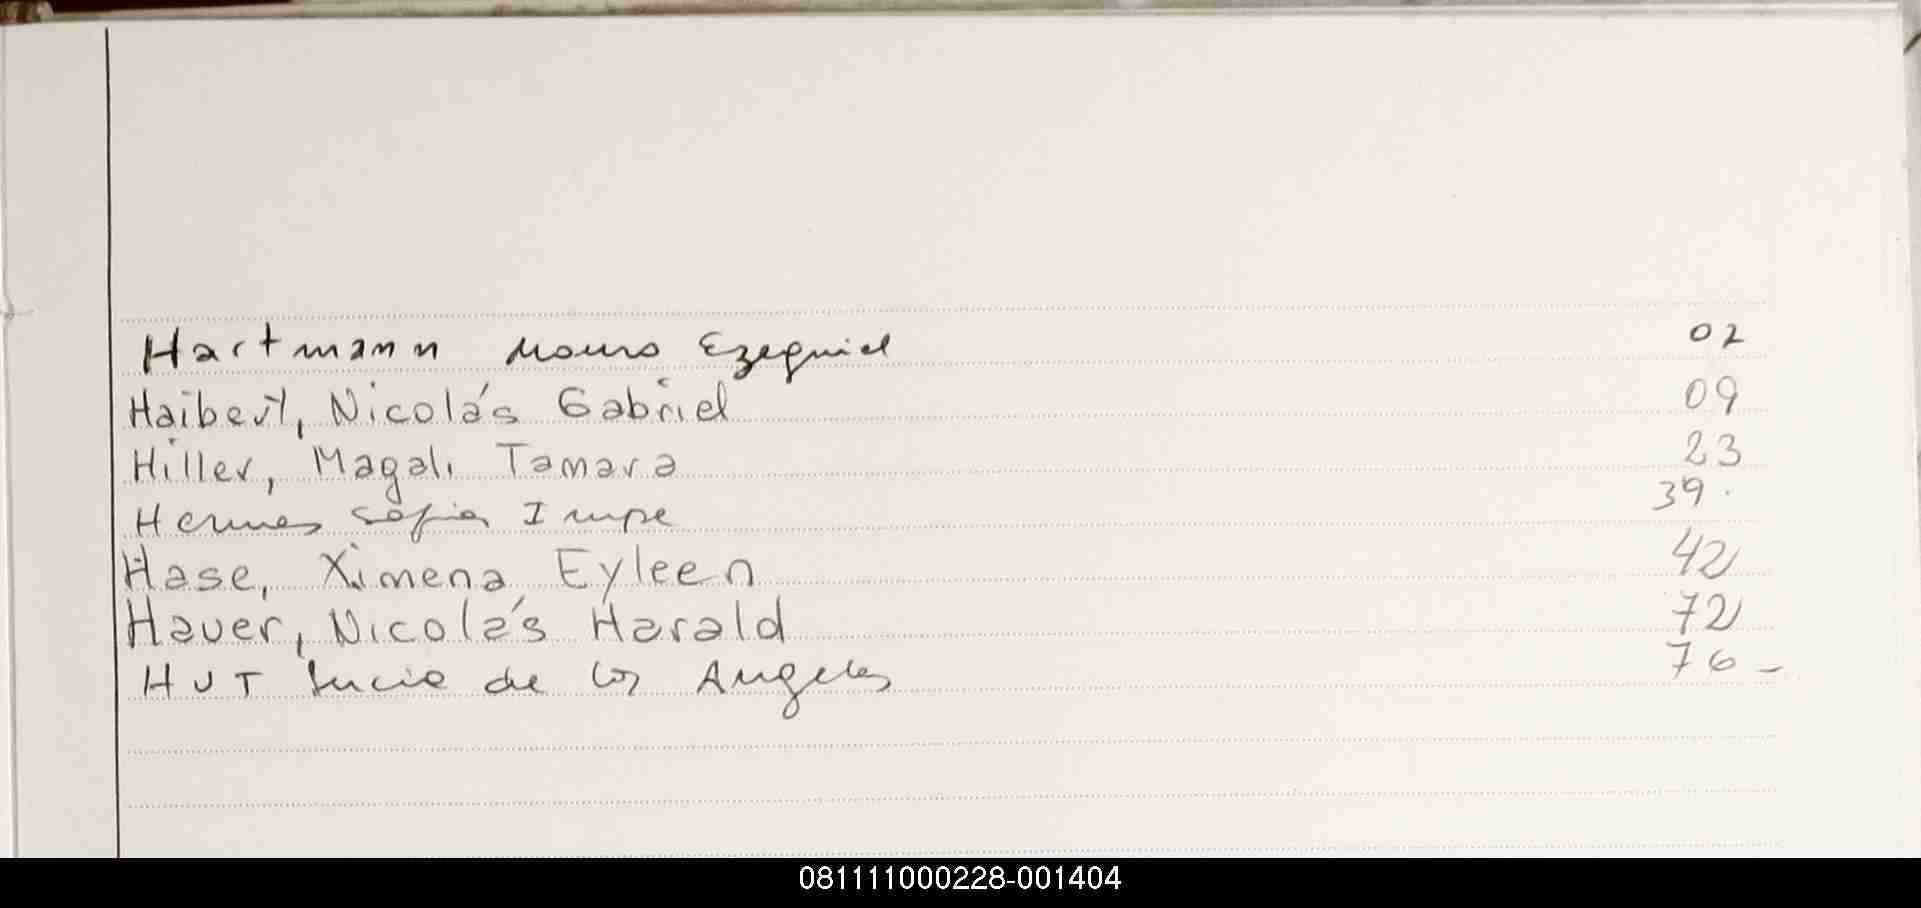 Hartmann Mauro Ezequiel 02
Haibert, Nicolás Gabriel 09
Hiller, Magali Tamara 23
Hermes Sofia 39.
Hase, Ximena Eyleen 42
Hauer, Nicolás Harald 72
HUT Lucia de los Angeles 76-
081111000228-001404